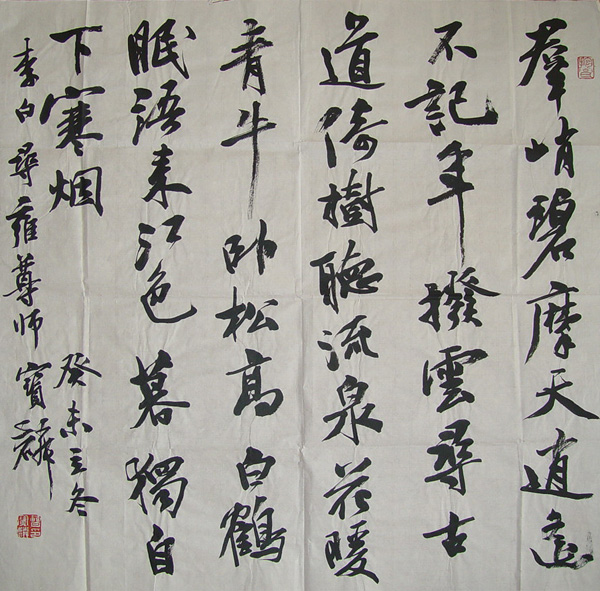 羣峭碧摩天逍遥
不記年撥雲尋古
道倚樹聽流泉花暖
青牛卧松高白鶴
眠語来江色暮獨自
下寒烟
李白尋雍尊师
癸未立冬
寶麟